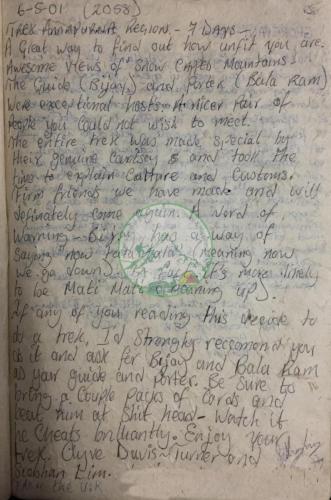 6-5-01 (2058)
Trek Annapurna Region - 7 Days -
A Great way to find out how unfit you are.
Awesome views of Snow Capped Mountains.
The Guide (Bijay) and Porter (Bala Ram)
were exceptional hosts. A nicer Pair of
People you could not wish to meet.
The entire trek was made special by
their genuine courtesy and took the
time to explain Culture and Customs.
Firm friends we have made and will
definately come again. A word of
warning - Bijay has a way of
saying now (meaning now
we go down) it's more likely
to be Mati Mati (meaning up).
If any of you reading this decide to
do a trek, I'd Strongly reccomend you
do it and ask for Bijay and Bala Ram
as your guide and porter. Be sure to
bring a couple packs of cards and
beat him at Shit head - Watch it
he Cheats brilliantly. Enjoy your
trek. Clyve Davis-Turner and
Siobhan Lim.
from the U.K